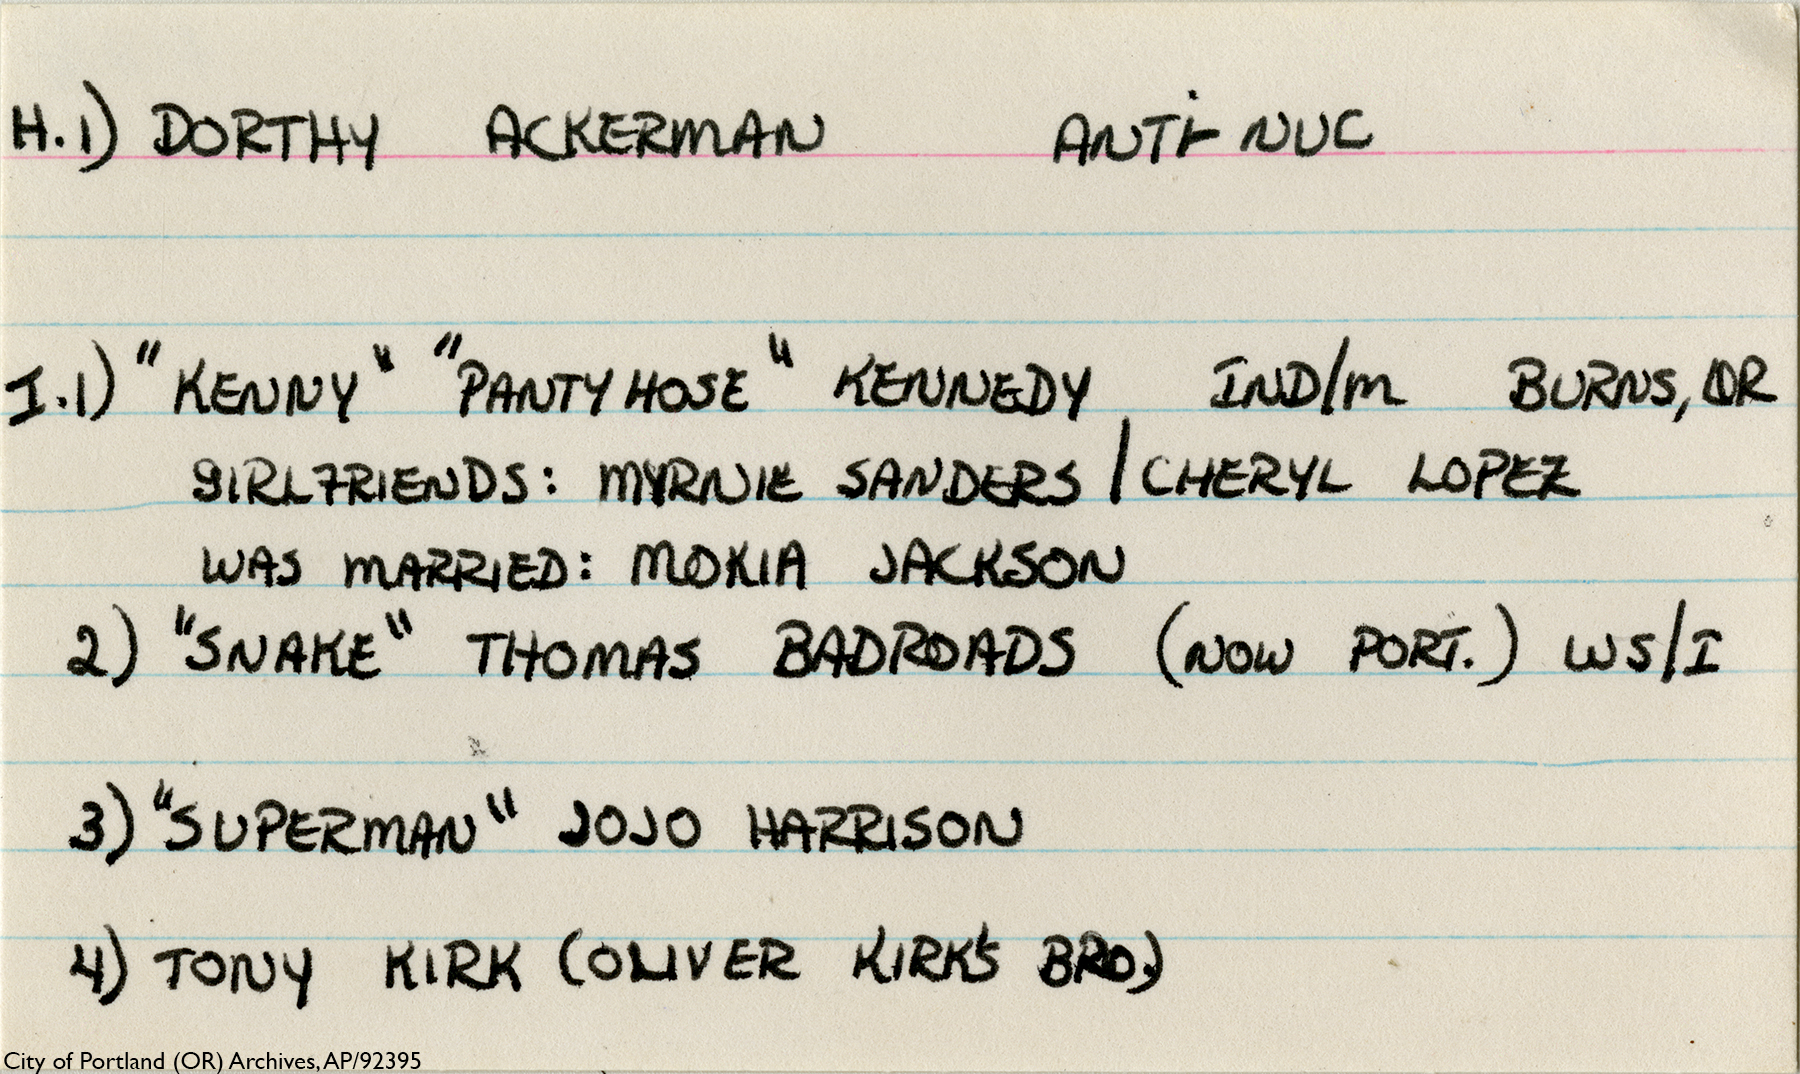 H.1) DORTHY ACKERMAN ANTI-NUC
I.1) "KENNY" "PANTY HOSE" KENNEDY IND/M BURNS, OR
GIRLFRIENDS: MYRNIE SANDERS / CHERYL LOPEZ
WAS MARRIED: MOKIA JACKSON
2) "SNAKE" THOMAS BADROADS (NOW PORT.) WS/I
3) "SUPERMAN" JOJO HARRISON
4) TONY KIRK (OLIVER KIRK'S BRO.)
City of Portland (OR) Archives, AP/92395